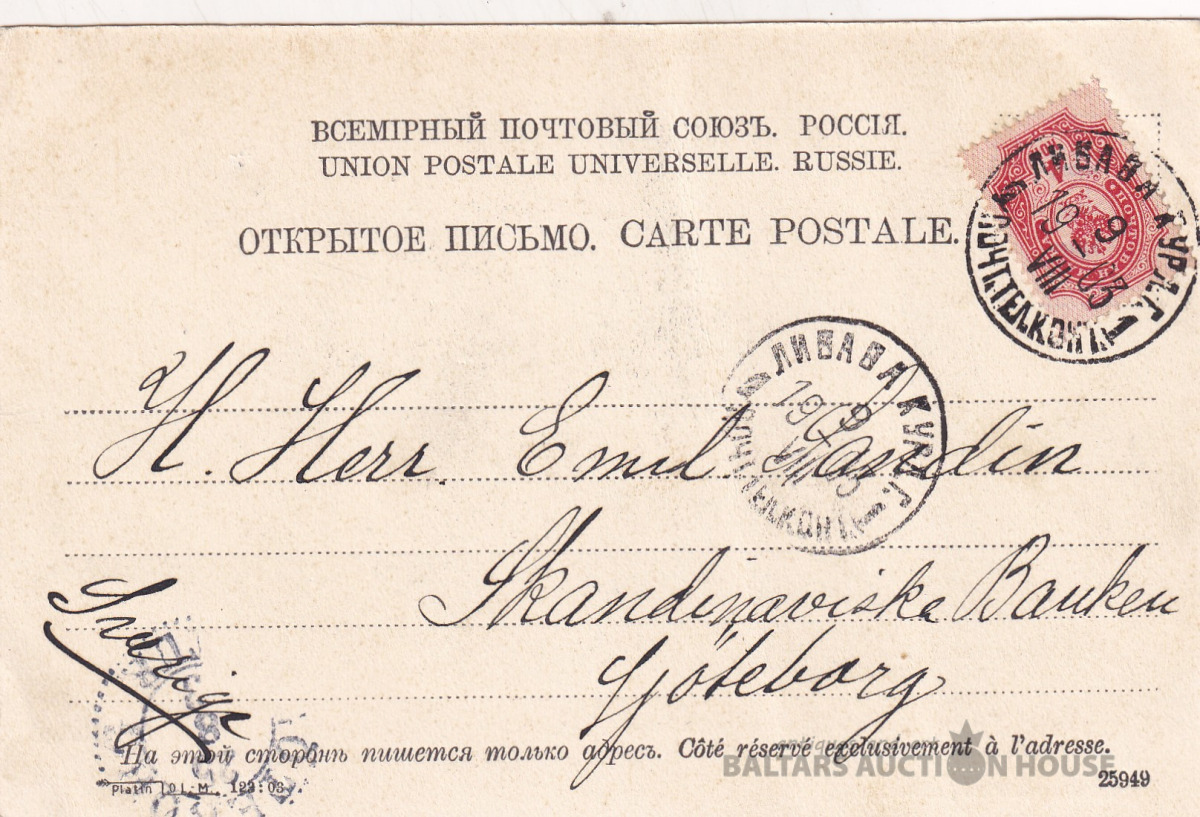 ВСЕМІРНЫЙ ПОЧТОВЫЙ СОЮЗЪ. РОССІЯ.
UNION POSTALE UNIVERSELLE. RUSSIE.
ОТКРЫТОЕ ПИСЬМО. CARTE POSTALE.
ЛИБАВА КУРЛ. Г.
9
VIII
1903
ПОЧТ. ТЕЛ. КОНТ.
ЛИБАВА КУРЛ. Г.
9
VIII
1903
ПОЧТ. ТЕЛ. КОНТ.
H. Herr Emil Sandin
Skandinaviska Banken
Göteborg
Sverige
На этой сторонѣ пишется только адресъ. Côté réservé exclusivement à l'adresse.
BALTARS AUCTION HOUSE
Platin D L-M. 123:03.
25949